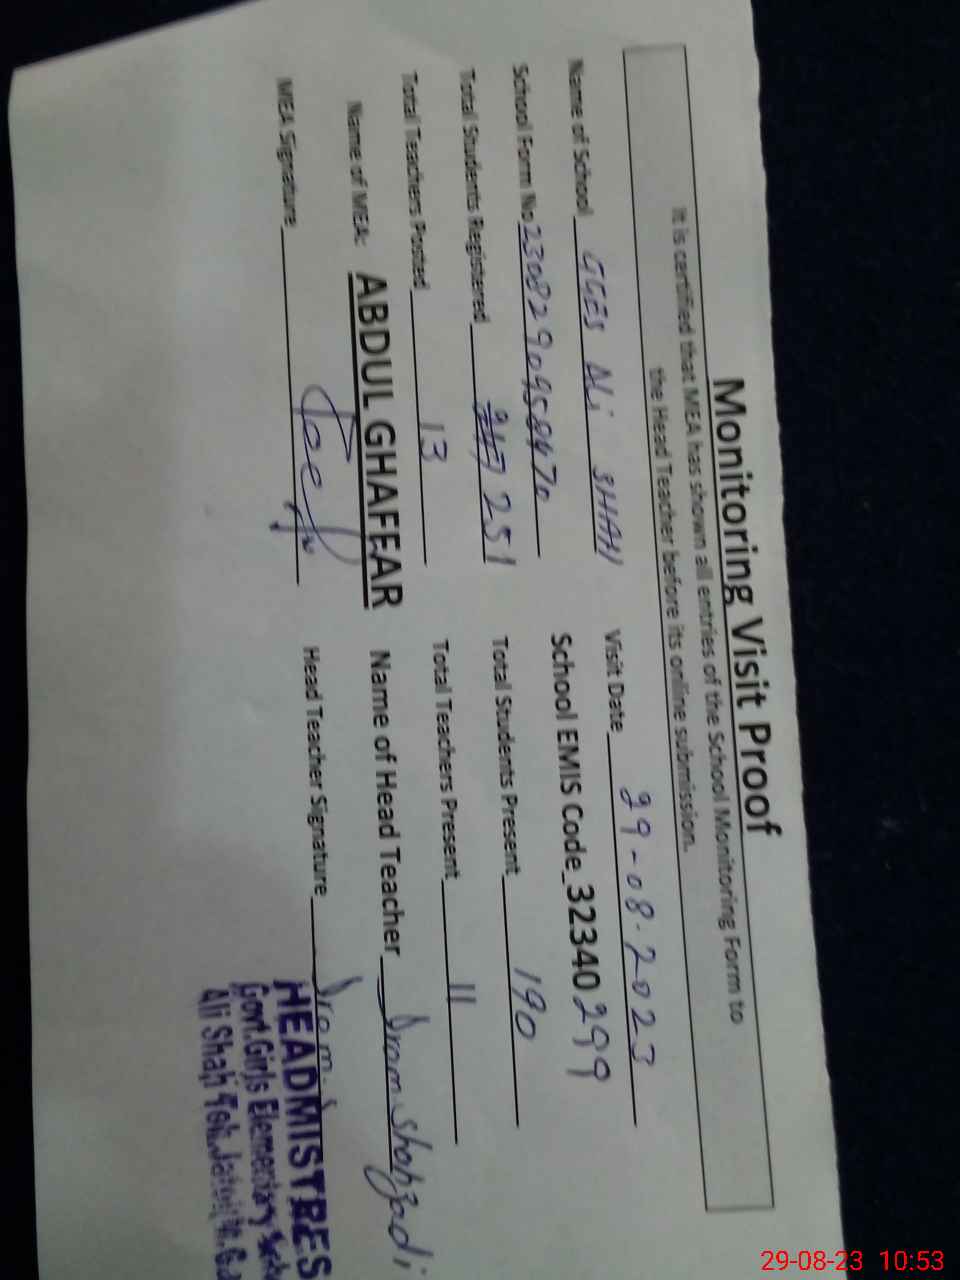 Monitoring Visit Proof
It is certified that MEA has shown all entries of the School Monitoring Form to
the Head Teacher before its online submission.
Name of School GGES ALi SHAH Visit Date 29-08-2023
School Form No 23082909458470 School EMIS Code 32340299
Total Students Registered 247 251 Total Students Present 190
Total Teachers Posted 13 Total Teachers Present 11
Name of MEA: ABDUL GHAFFAR Name of Head Teacher Iram Shahzadi
MEA Signature Head Teacher Signature
HEADMISTRES
Govt. Girls Elementary
Ali Shah Teh. Jatoi
29-08-23 10:53